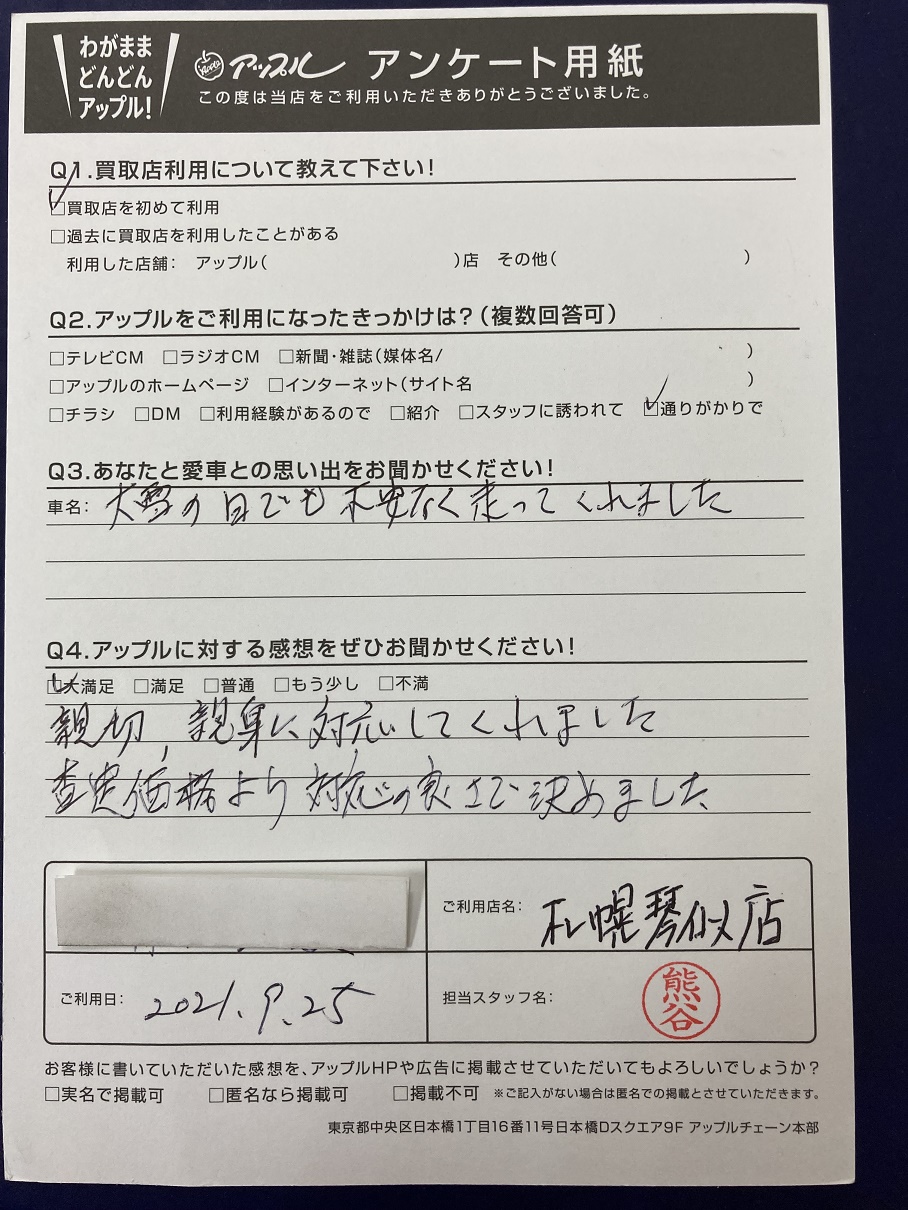 わがまま
どんどん
アップル!
アップル アンケート用紙
この度は当店をご利用いただきありがとうございました。
Q1.買取店利用について教えて下さい!
□買取店を初めて利用
□過去に買取店を利用したことがある
利用した店舗: アップル( )店 その他( )
Q2.アップルをご利用になったきっかけは?(複数回答可)
□テレビCM □ラジオCM □新聞・雑誌(媒体名/ )
□アップルのホームページ □インターネット(サイト名 )
□チラシ □DM □利用経験があるので □紹介 □スタッフに誘われて □通りがかりで
Q3.あなたと愛車との思い出をお聞かせください!
車名: 大雪の日でも不安なく走ってくれました
Q4.アップルに対する感想をぜひお聞かせください!
□大満足 □満足 □普通 □もう少し □不満
親切,親身に対応してくれました
査定価格より対応の良さで決めました
ご利用店名: 札幌琴似店
ご利用日: 2021.9.25
担当スタッフ名: 熊谷
お客様に書いていただいた感想を、アップルHPや広告に掲載させていただいてもよろしいでしょうか?
□実名で掲載可 □匿名なら掲載可 □掲載不可 ※ご記入がない場合は匿名での掲載とさせていただきます。
東京都中央区日本橋1丁目16番11号日本橋Dスクエア9F アップルチェーン本部